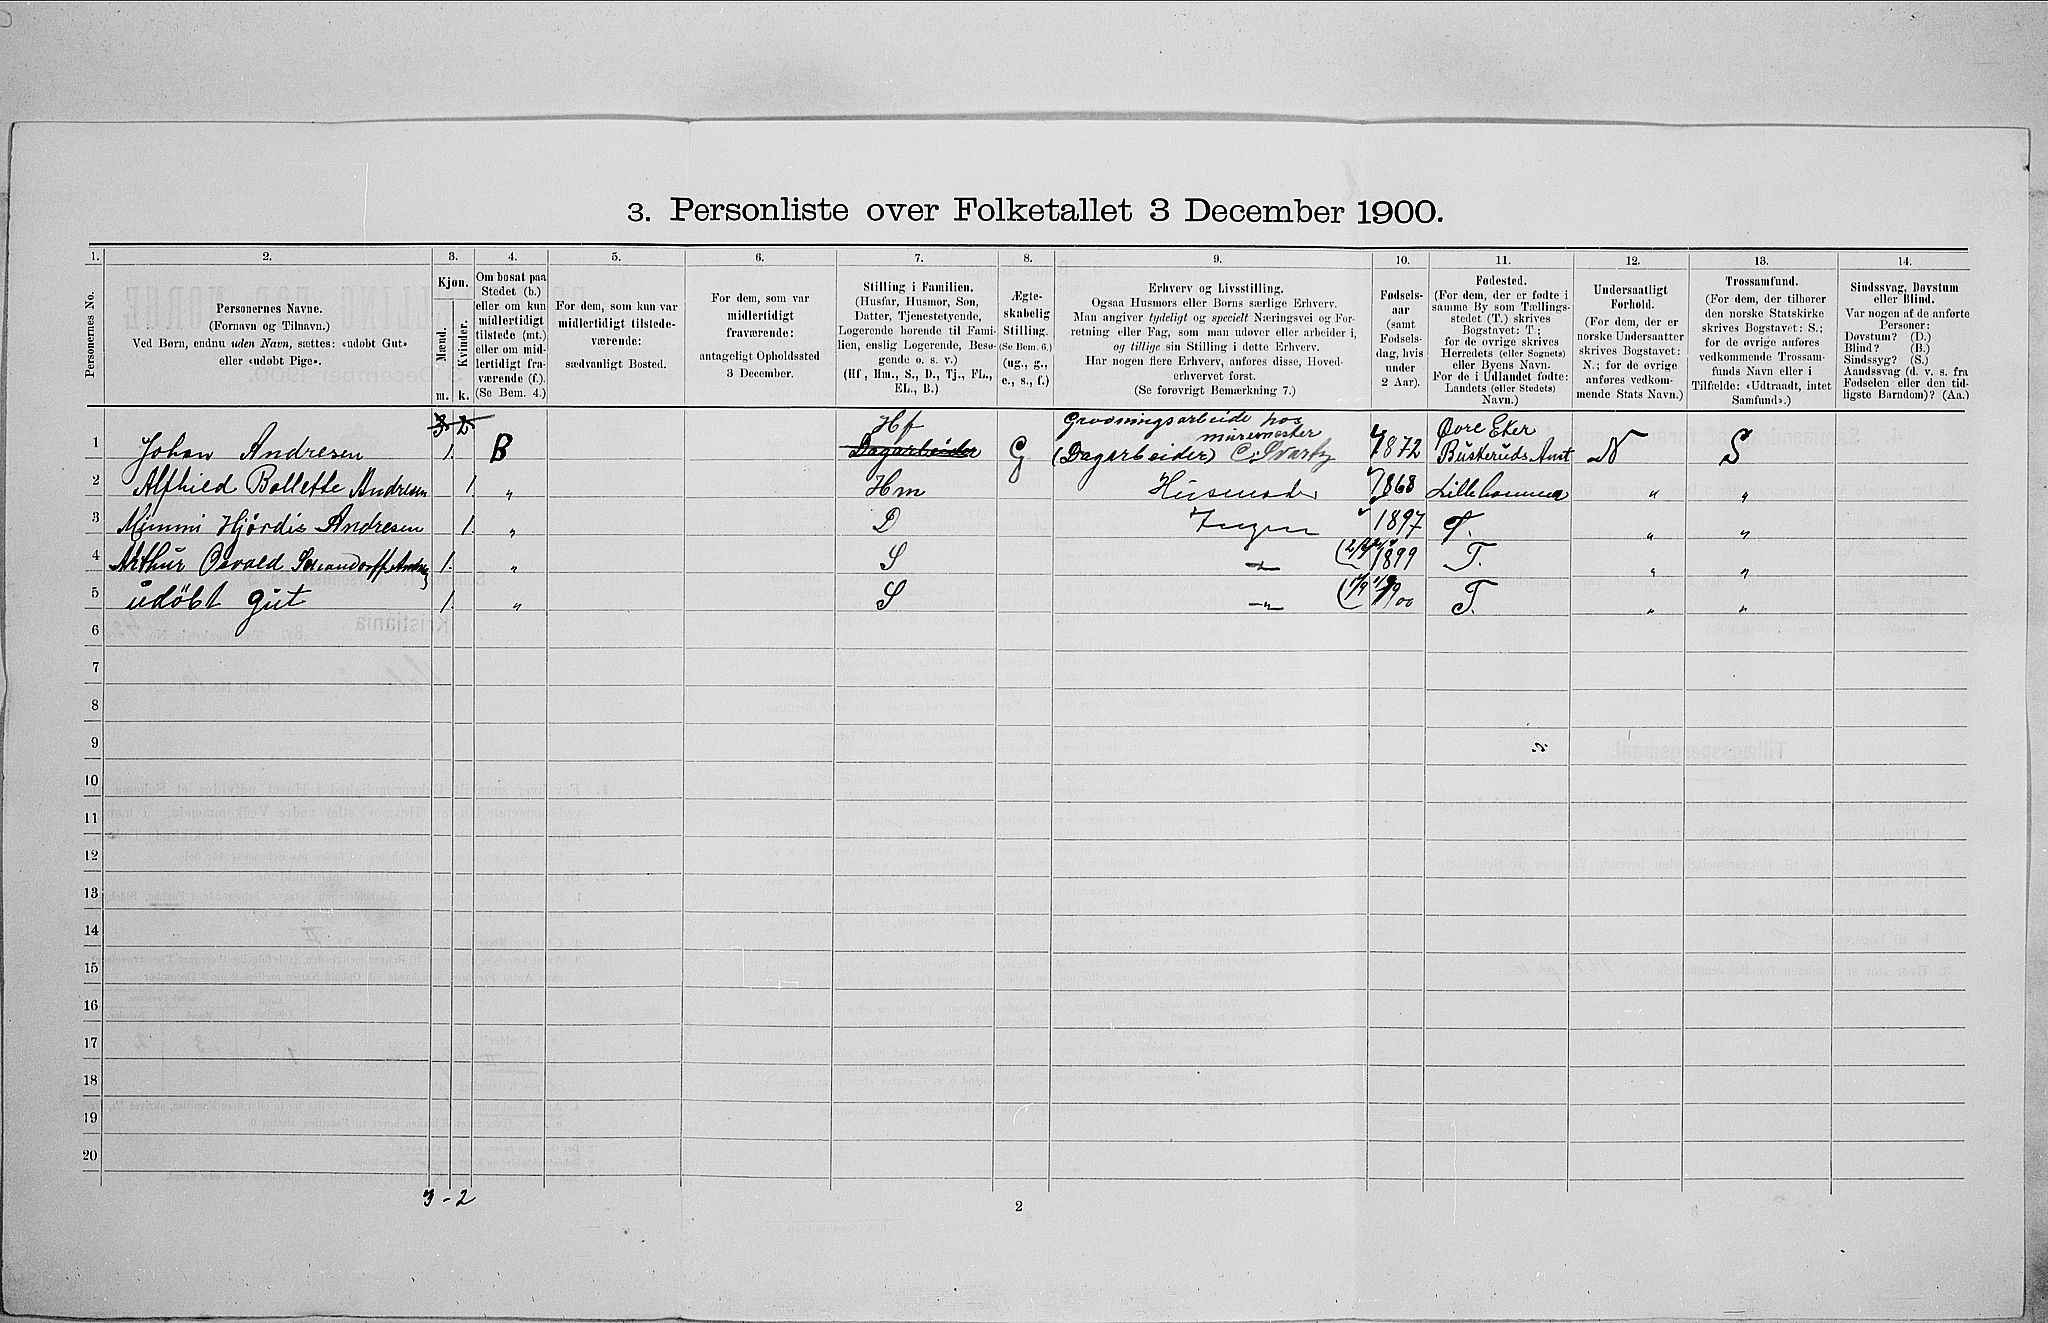 3. Personliste over Folketallet 3 December 1900.
1. 2. 3. 4. 5. 6. 7. 8. 9. 10. 11. 12. 13. 14.
Personernes No.
Personernes Navne.
(Fornavn og Tilnavn.)
Ved Børn, endnu uden Navn, sættes: «udøbt Gut»
eller «udøbt Pige».
Kjøn.
Mænd.
Kvinder.
m. k.
Om bosat paa
Stedet (b.)
eller om kun
midlertidigt
tilstede (mt.)
eller om mid-
lertidigt fra-
værende (f.).
(Se Bem. 4.)
For dem, som kun var
midlertidigt tilstede-
værende:
sædvanligt Bosted.
For dem, som var
midlertidigt
fraværende:
antageligt Opholdssted
3 December.
Stilling i Familien.
(Husfar, Husmor, Søn,
Datter, Tjenestetyende,
Logerende hørende til Fami-
lien, enslig Logerende, Besø-
gende o. s. v.)
(Hf, Hm., S., D., Tj., FL.,
EL., B.)
Ægte-
skabelig
Stilling.
(Se Bem. 6.)
(ug., g.,
e., s., f.)
Erhverv og Livsstilling.
Ogsaa Husmors eller Børns særlige Erhverv.
Man angiver tydeligt og specielt Næringsvei og For-
retning eller Fag, som man udøver eller arbeider i,
og tillige sin Stilling i dette Erhverv.
Har nogen flere Erhverv, anføres disse, Hoved-
erhvervet først.
(Se forøvrigt Bemærkning 7.)
Fødsels-
aar
(samt
Fødsels-
dag, hvis
under
2 Aar).
Fødested.
(For dem, der er fødte i
samme By som Tællings-
stedet (T.) skrives
Bogstavet: T.;
for de øvrige skrives
Herredets (eller Sognets)
eller Byens Navn.
For de i Udlandet fødte:
Landets (eller Stedets)
Navn.)
Undersaatligt
Forhold.
(For dem, der er
norske Undersaatter
skrives Bogstavet:
N.; for de øvrige
anføres vedkom-
mende Stats Navn.)
Trossamfund.
(For dem, der tilhører
den norske Statskirke
skrives Bogstavet: S.;
for de øvrige anføres
vedkommende Trossam-
funds Navn eller i
Tilfælde: «Udtraadt, intet
Samfund».)
Sindssvag, Døvstum
eller Blind.
Var nogen af de anførte
Personer:
Døvstum? (D.)
Blind? (B.)
Sindssyg? (S.)
Aandssvag (d. v. s. fra
Fødselen eller den tid-
ligste Barndom)? (Aa.)
3 - 2 Hf hos Øvre Eker
1 Johan Andresen 1. B Dagarbeider G (Dagarbeider) 1872 Buskeruds Amt N S
2 Alfhild Bollette Andresen 1. „ Hm 1868 „ „
3 Mimmi Hjørdis Andresen 1. „ D Ingen 1897 T. „ „
4 Arthur Osvald 1. „ S „ 1899 T. „ „
5 udøbt gut 1. „ S -„- T. „ „
6
7
8
9
10
11
12
13
14
15
16
17
18
19
20
3 - 2
2